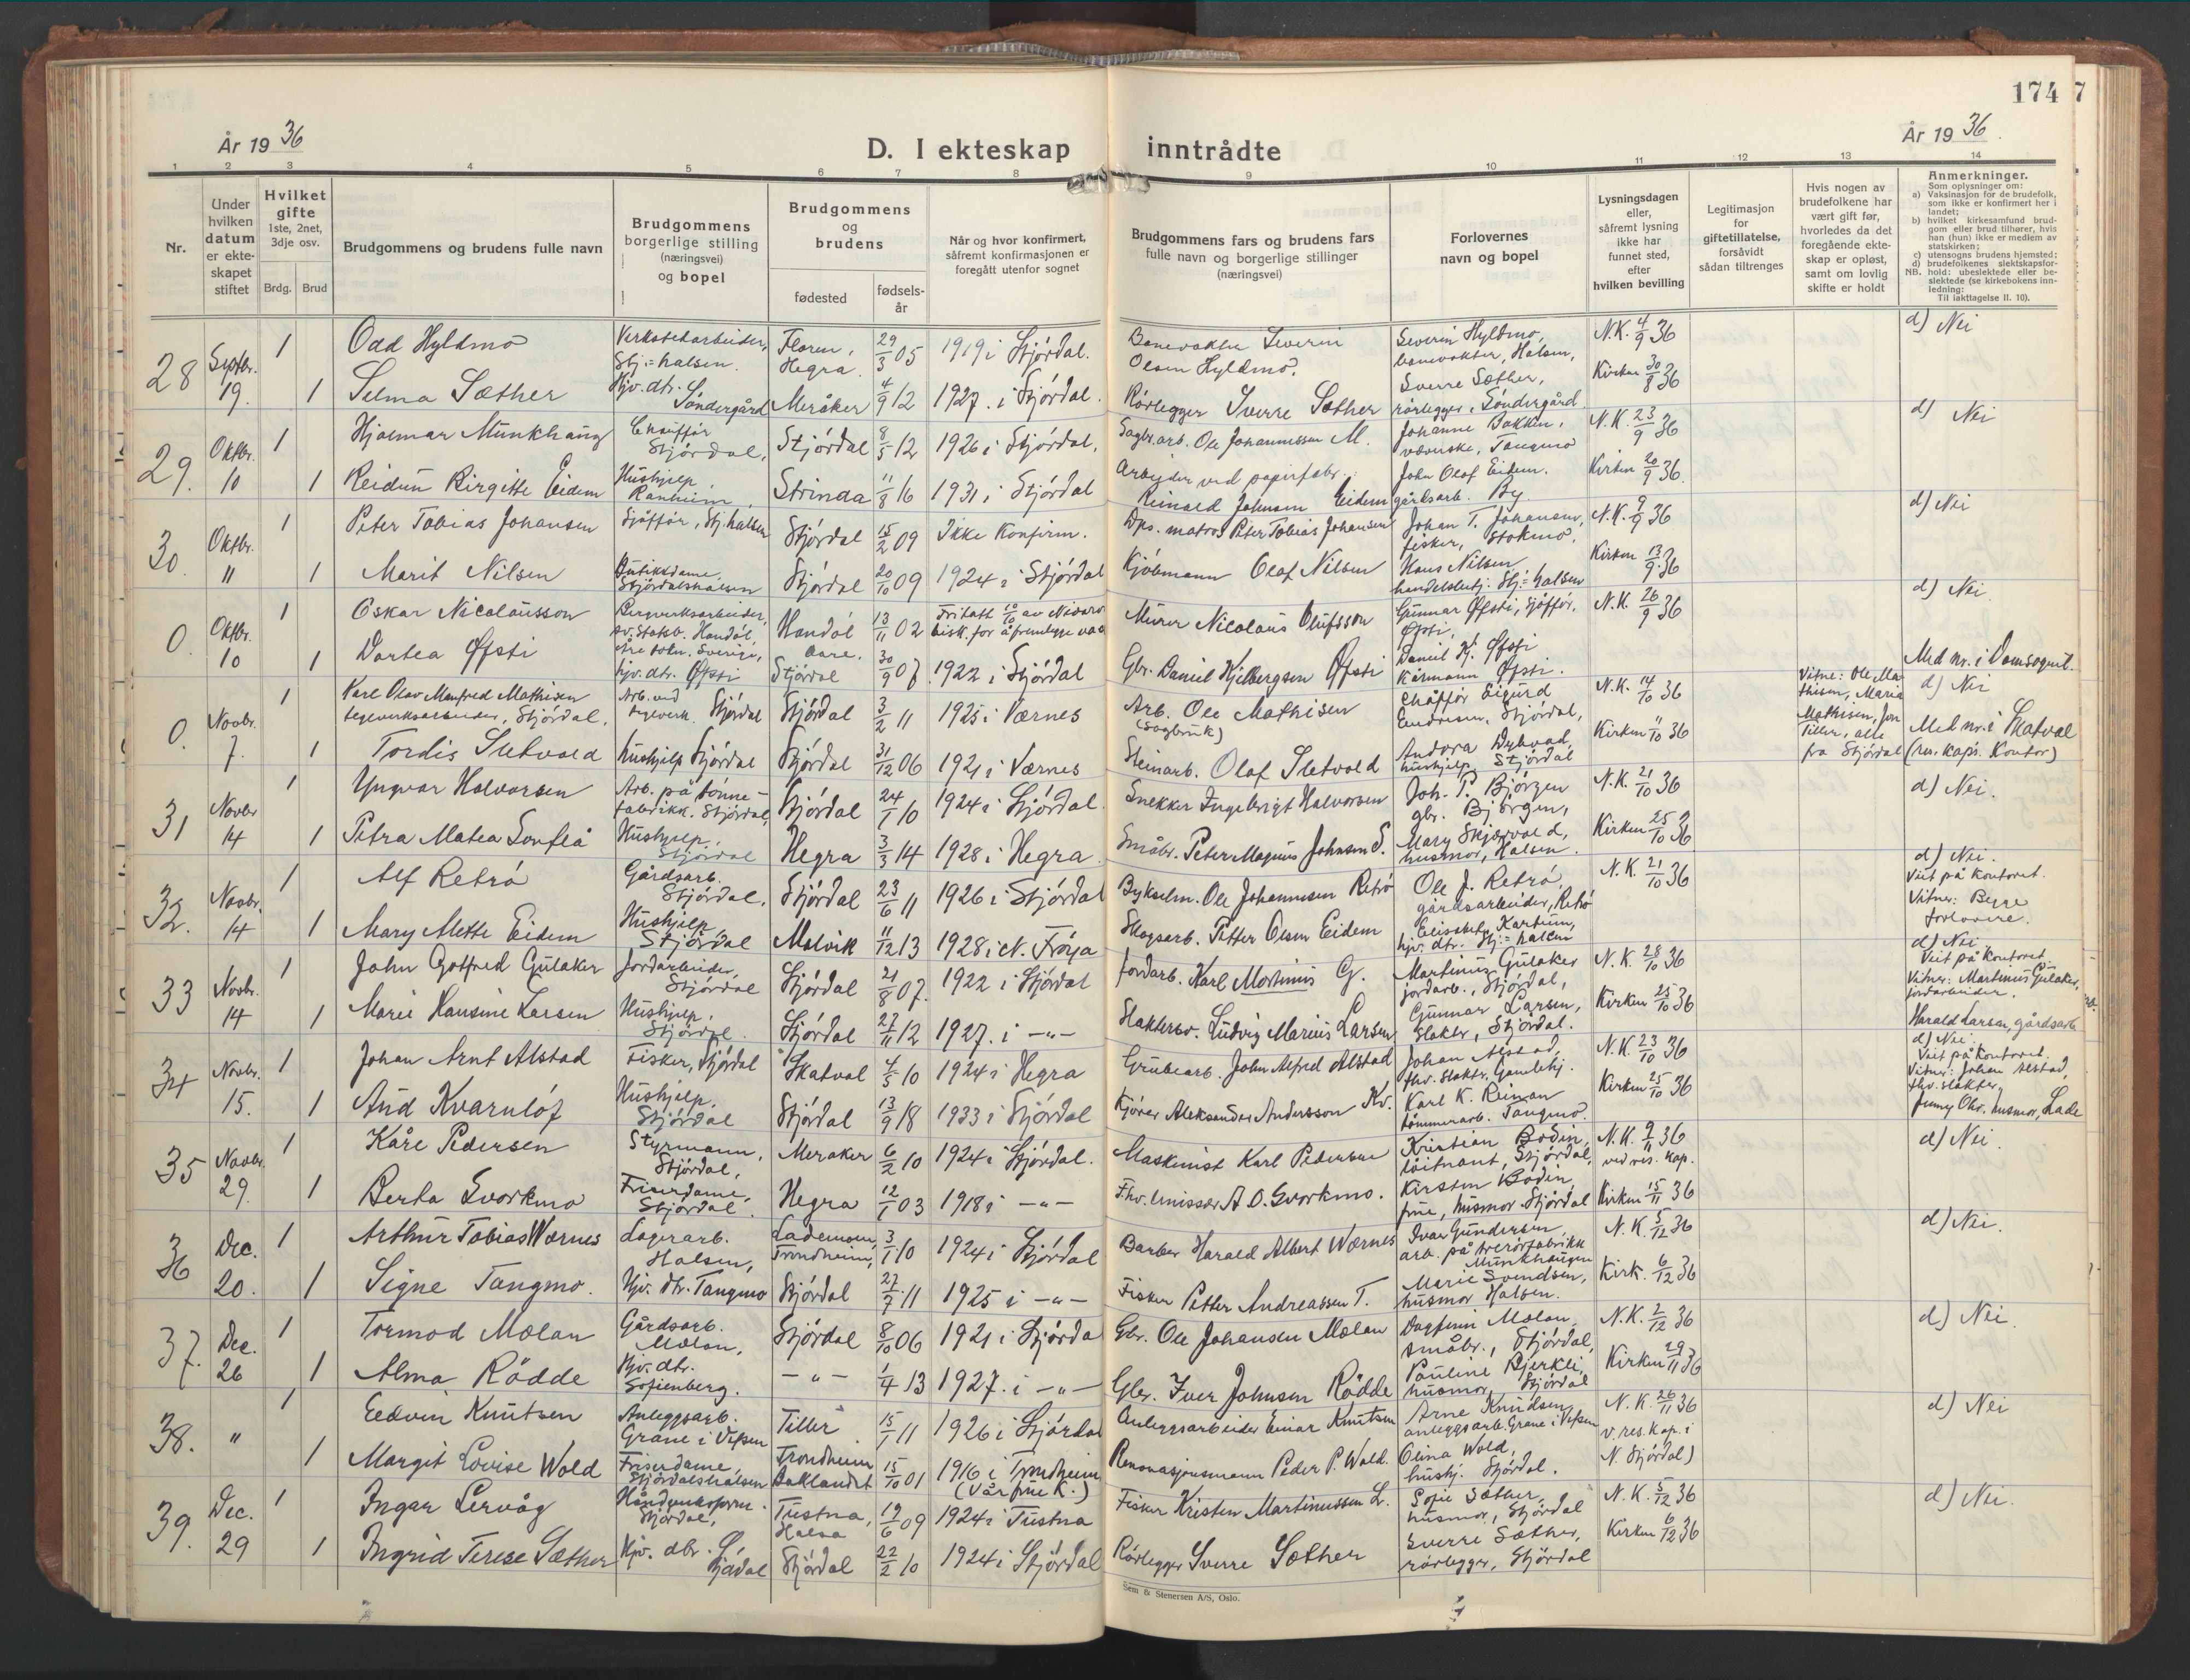 174
7
År 1936
D. I ekteskap inntrådte
År 1936.
1 2 3 4 5 6 7 8 9 10 11 12 13 14
Nr.
Under hvilken datum er ekteskapet stiftet
Hvilket gifte
1ste, 2net, 3dje osv.
Brdg. Brud
Brudgommens og brudens fulle navn
Brudgommens borgerlige stilling (næringsvei) og bopel
Brudgommens og brudens
fødested
fødselsår
Når og hvor konfirmert, såfremt konfirmasjonen er foregått utenfor sognet
Brudgommens fars og brudens fars fulle navn og borgerlige stillinger (næringsvei)
Forlovernes navn og bopel
Lysningsdagen eller, såfremt lysning ikke har funnet sted, efter hvilken bevilling
Legitimasjon for giftetillatelse, forsåvidt sådan tiltrenges
Hvis nogen av brudefolkene har vært gift før, hvorledes da det foregående ekteskap er opløst, samt om lovlig skifte er holdt
Anmerkninger.
Som oplysninger om:
a) Vaksinasjon for de brudefolk, som ikke er konfirmert her i landet;
b) hvilket kirkesamfund brudgom eller brud tilhører, hvis han (hun) ikke er medlem av statskirken;
c) utensogns brudens hjemsted;
d) brudefolkenes slektskapsforhold: ubeslektede eller beslektede (se kirkebokens innledning:
NB. Til iakttagelse II. 10).
28 Septbr. 19. 1 Odd Hyldmo Verkstedarbeider, Stj:halsen. Floren, Hegra. 29/3 05 1919 i Stjørdal. Banevokter Severin Olsen Hyldmo. Severin Hyldmo, banevokter, Halsen, N.K. 4/9 36 d) Nei
1 Selma Sæther Hjv. dtr. Søndergård Meråker 4/9 12 1927. i Stjørdal. Rørlegger Sverre Sæther Sverre Sæther, rørlegger, Søndergård Kirken 30/8 36
29. Oktbr. 10 1 Hjalmar Munkhaug Chauffør Stjørdal, Stjørdal 8/5 12 1926 i Stjørdal, Sagbr.arb. Ole Johannessen M. Johanne Bakken, væverske, Tangmo N.K. 23/9 36 d) Nei
1 Reidun Birgitte Eidem Hushjelp Ranheim Strinda 11/8 16 1931 i Stjørdal Arbeider ved papirfabr. Reinald Johnsen Eidem John Olaf Eidem. gårdsarb. By. Kirken 20/9 36.
30. Oktbr. 11 1 Peter Tobias Johansen Sjåffør, Stj.halsen Stjørdal 15/2 09 Ikke konfirm. Dps. matros Peter Tobias Johansen Johan T. Johansen, fisker, Stokmo. N.K. 9/9 36 d) Nei
1 Marit Nilsen Butikkdame, Stjørdalshalsen Stjørdal 20/10 09 1924 i Stjørdal Kjøbmann Olaf Nilsen Hans Nilsen handelsbetj. Stj:halsen Kirken 13/9 36
0. Oktbr. 10 1 Oskar Nicolausson Bergverksarbeider, Handöl, Sverige, Handöl Åre. 13/11 02 Murer Nicolaus Olufsson Gunnar Øfsti, sjåffør, Øfsti, N.K. 26/9 36 d) Nei.
1 Dortea Øfsti hjv. dtr. Øfsti Stjørdal 30/9 07. 1922 i Stjørdal Gbr. Daniel Kjelbergsen Øfsti Daniel Kj. Øfsti Kårmann Øfsti. Med nr. i Domsognet.
0. Novbr. 7. 1 Karl Olav Manfred Mathisen teglverksarbeider, Stjørdal. Arb. ved teglverk. Stjørdal Stjørdal 3/2 11 1925 i Værnes Arb. Ole Mathisen (Sagbruk) Chåffør Sigurd Stjørdal, N.K. 14/10 36 Vitne: Ole Mathisen, Maria Mathisen, Jon Tiller, alle fra Stjørdal d) Nei
1 Tordis Sletvold hushjelp Stjørdal Stjørdal 31/12 06 1921 i Værnes Steinarb. Olaf Sletvold Andora Dybvad hushjelp, Stjørdal Kirken 11/10 36 Med nr. i Skatval (res. kap's. Kontor)
31 Novbr 14 1 Yngvar Halvorsen Arb. på tønnefabrikk. Stjørdal, Stjørdal 24/1 10 1924 i Stjørdal. Snekker Ingebrigt Halvorsen Joh. P. Bjørgen gbr. Bjørgen, N.K. 21/10 36 d) Nei.
1 Petra Matea Sonflå Hushjelp, Stjørdal Hegra 3/3 14 1928 i Hegra. Småbr. Peter Magnus Johnsen S. Mary Skjærvold, husmor, Halsen. Kirken 25/10 36
32. Novbr. 14 1 Alf Retrø Gårdsarb. Stjørdal. Stjørdal 23/6 11 1926 i Stjørdal Bykselm. Ole Johannesen Retrø Ole J. Retrø, gårdsarbeider, Retrø N.K. 21/10 36 d) Nei. Viet på kontoret. Vitner: Begge forlovere.
1 Mary Mette Eidem Hushjelp, Stjørdal Malvik 11/12 13 1928 i N. Frøya Skogsarb. Petter Olsen Eidem hjv. dtr. Stj:halsen
33 Novbr. 14 1 John Gotfred Gulaker Jordarbeider, Stjørdal Stjørdal 21/8 07. 1922 i Stjørdal Jordarb. Karl Martinus G. Martinus Gulaker jordarb., Stjørdal, N.K. 28/10 36 d) Nei. Viet på kontoret. Vitner: Martinus Gulaker, jordarbeider.
1 Marie Hansine Larsen Hushjelp, Stjørdal. Stjørdal 27/11 12 1927. i -"- Slaktersv. Ludvig Marius Larsen Gunnar Larsen, Slakter, Stjørdal. Kirken 25/10 36 Harald Larsen, gårdsarb
34 Novbr. 15. 1 Johan Arnt Alstad Fisker, Stjørdal Skatval 4/5 10 1924 i Hegra Grubearb. John Alfred Alstad Johan Alstad, fhv. slakter, N.K. 23/10 36 d) Nei. Viet på kontoret. Vitner: Johan Alstad, fhv. slakter,
1 Aud Kvarnløf Hushjelp, Stjørdal Stjørdal 13/9 18 1933 i Stjørdal Kjører Aleksander Andersson Kv. Karl K. Reinan tømmerarb. Tangmo. Kirken 25/10 36 Jenny Chr. husmor, Lade
35 Novbr. 29. 1 Kåre Pedersen Styrmann, Stjørdal, Meraker 6/2 10 1924 i Stjørdal. Maskinist Karl Pedersen Kristian Bodin, løitnant, Stjørdal, N.K. 9/11 36 ved res. kap. d) Nei.
1 Berta Svorkmo Friserdame, Stjørdal. Hegra 12/1 03 1918 i -"- Fhv. Emissær A. O. Svorkmo. Kirsten Bodin, frue, husmor. Stjørdal Kirken 15/11 36
36 Dec. 20. 1 Arthur Tobias Wærnes Lagerarb. Halsen, Lademoen, Trondheim, 3/1 10 1924 i Stjørdal Barber Harald Albert Wærnes Ivar Gundersen arb. på trerørfabrikk Munkhaugen N.K. 5/12 36 d) Nei.
1 Signe Tangmo. Hjv. dtr. Tangmo Stjørdal 27/7 11 1925 i -"- Fisker Petter Andreassen T. Marie Svendsen, husmor Halsen. Kirk. 6/12 36
37. Dec. 26 1 Tormod Mælan Gårdsarb. Mælan, Stjørdal 8/10 06 1921 i Stjørdal Gbr. Ole Johansen Mælan Dagfinn Mælan, småbr., Stjørdal, N.K. 2/12 36 d) Nei
1 Alma Rødde Hjv. dtr. Sofienberg. -"- 1/4 13 1927. i -"- Gbr. Iver Johnsen Rødde Pauline Bjerkli, husmor, Stjørdal Kirken 29/11 36
38. " 1 Edvin Knutsen Anleggsarb. Grane i Vefsen Tiller 15/1 11 1926 i Stjørdal Anleggsarbeider Einar Knutsen Arne Knudsen, anleggsarb. Grane i Vefsen N.K. 26/11 36 v. res. kap. i N. Stjørdal) d) Nei
1 Margit Lovise Wold Friserdame, Stjørdalshalsen Trondheim Baklandet 15/10 01 1916 i Trondheim (Vår frue K.) Renovasjonsmann Peder P. Wold. Olina Wold, hushj. Stjørdal.
39. Dec. 29 1 Ingar Lervåg Stjørdal, Tustna, Halsa 19/6 09 1924 i Tustna Fisker Kristen Martinussen L. Sofie Sæther, husmor, Stjørdal N.K. 5/12 36 d) Nei.
1 Ingrid Terese Sæther Hjv. dtr. Stjørdal Stjørdal 22/2 10 1924 i Stjørdal Rørlegger Sverre Sæther Sverre Sæther, rørlegger, Stjørdal Kirken 6/12 36
Sem & Stenersen A/S, Oslo.